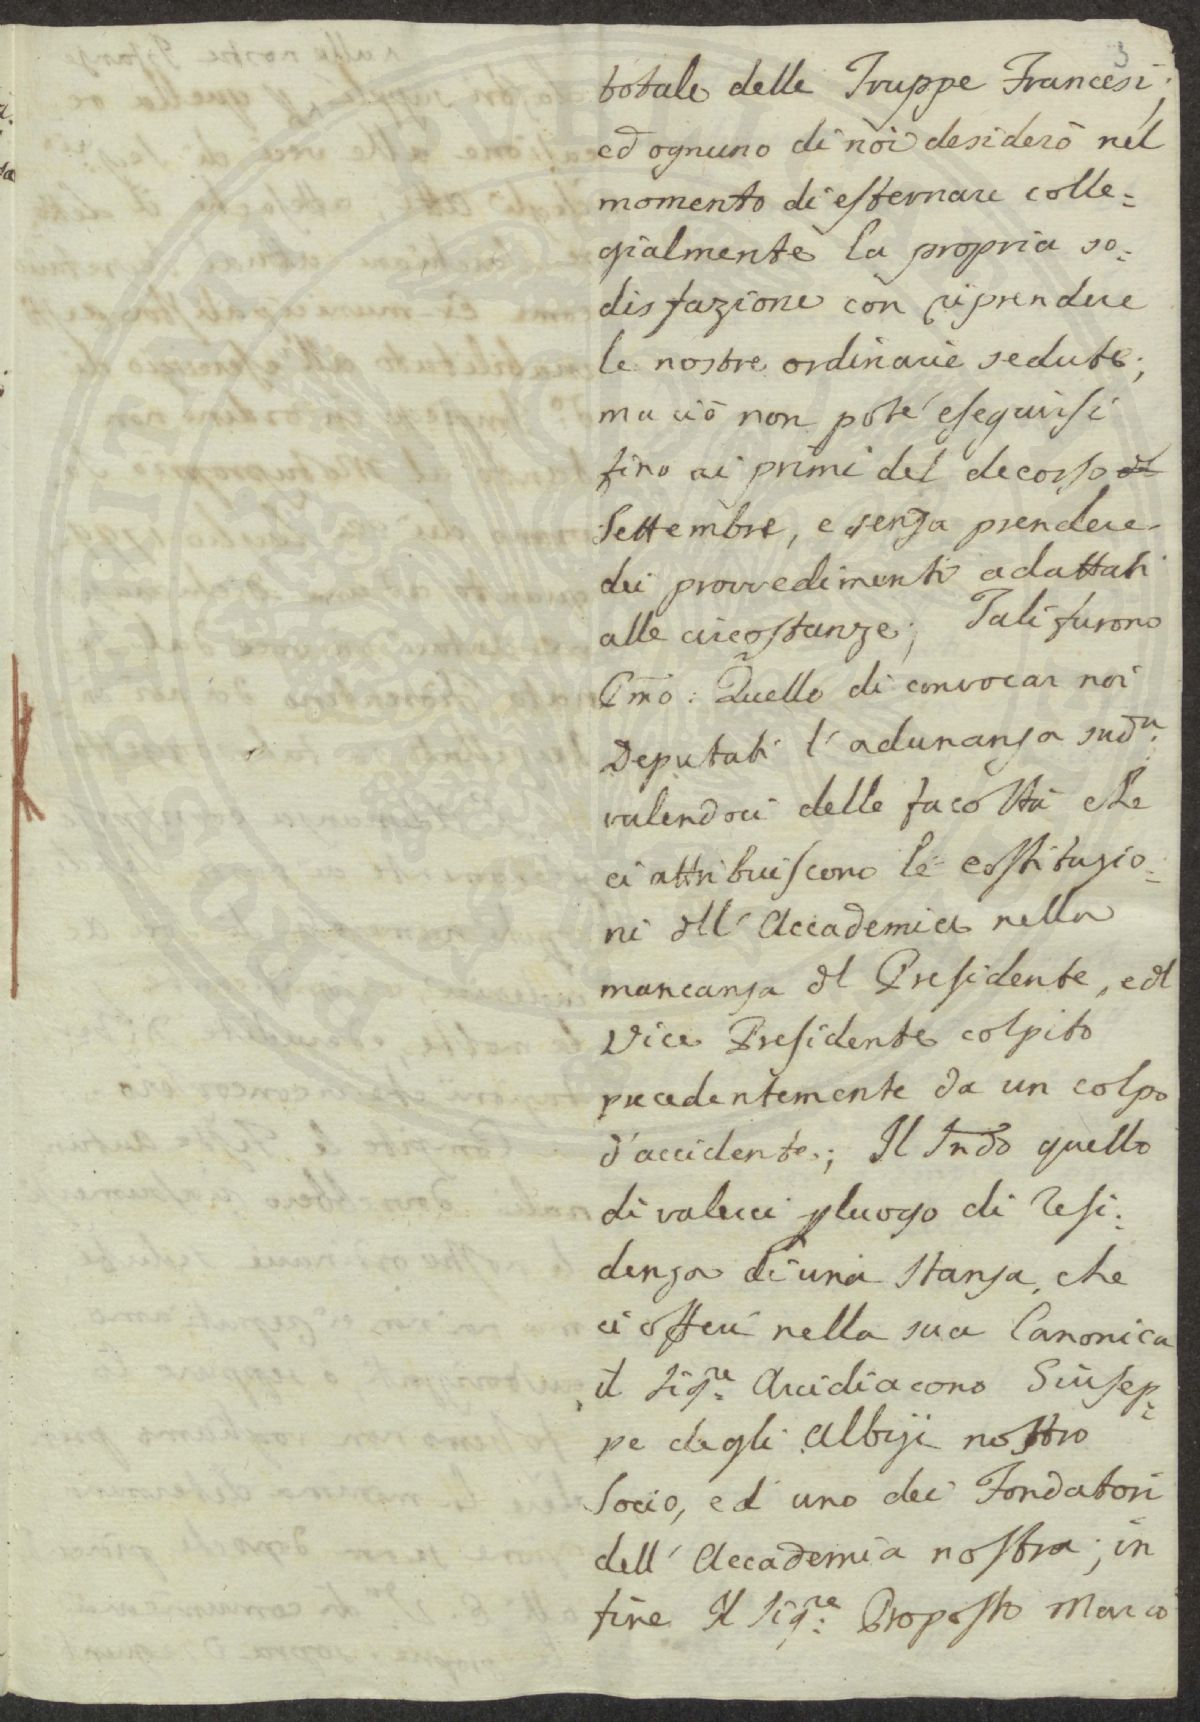 3
totale delle Truppe Francesi;
ed ognuno di noi desiderò nel
momento di esternare colle=
gialmente la propria so=
disfazione con riprendere
le nostre ordinarie sedute;
ma ciò non poté eseguirsi
fino ai primi del decorso
Settembre, e senza prendere
dei provvedimenti adattati
alle circostanze; Tali furono
Pmo: Quello di convocar noi
Deputati l'adunanza sudª:
valendoci delle facoltà che
ci attribuiscono le costituzio=
ni dll' Accademia nella
mancanza dl Presidente, e dl
Vice Presidente colpito
precedentemente da un colpo
d'accidente; Il Sndo quello
di valerci p luogo di resi=
denza di una stanza, che
ci offerì nella sua Canonica
il Sigre: Arcidiacono Giusep=
pe degli Albizi nostro
Socio, ed uno dei Fondatori
dell' Accademia nostra; in
fine Il Sigre: Proposto Marco